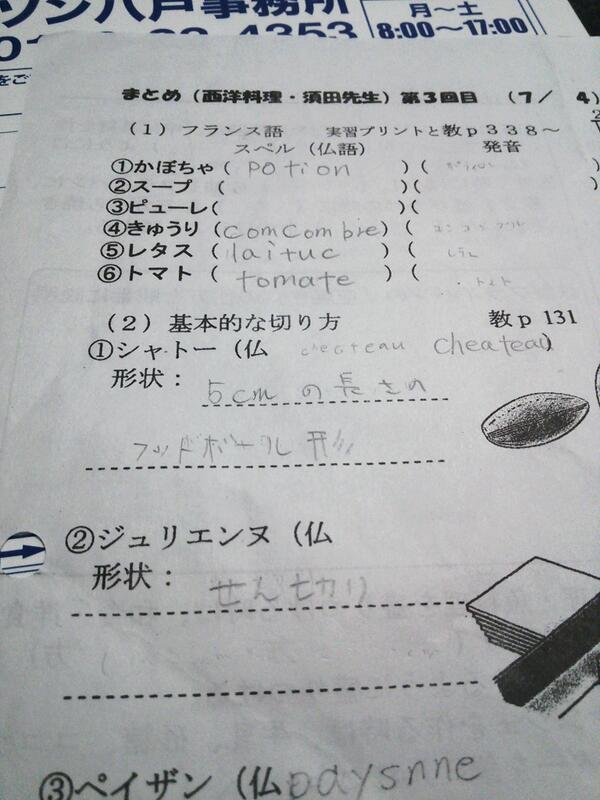 ソン八戸事務所
月～土
4353
8:00～17:00
まとめ（西洋料理・須田先生）第３回目 （７／ ４）
（１）フランス語 実習プリントと教ｐ３３８～
スペル（仏語） 発音
①かぼちゃ（ potion ）（
②スープ （ ）（ ）
③ピューレ（ ）（
④きゅうり（comcombre）（
⑤レタス（laituc ）（
⑥トマト（ tomate ）（ トマト
（２）基本的な切り方 教ｐ 131
①シャトー（仏 cheateau cheateau）
形状： 5cm の長さの
フッドボール形
②ジュリエンヌ（仏
形状： せん切り
③ペイザン（仏 odysnne